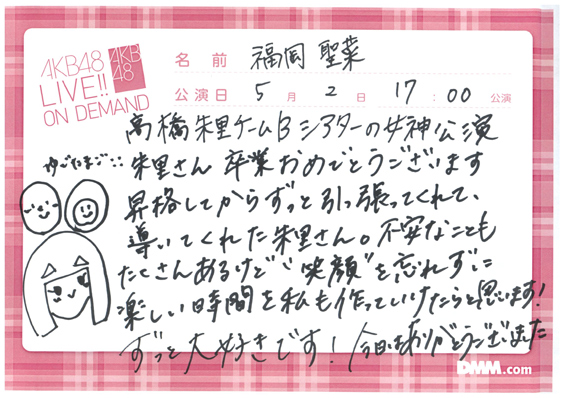 AKB48
LIVE!!
ON DEMAND
AKB
48
名前 福岡 聖菜
公演日 5月 2日 17:00 公演
高橋朱里チームB シアターの女神公演
ゆでたまご::
朱里さん 卒業おめでとうございます
昇格してからずっと引っ張ってくれて、
導いてくれた朱里さん。不安なことも
たくさんあるけど"笑顔"を忘れずに
楽しい時間を私も作っていけたらと思います!
ずっと大好きです!今日はありがとうございました
DMM.com